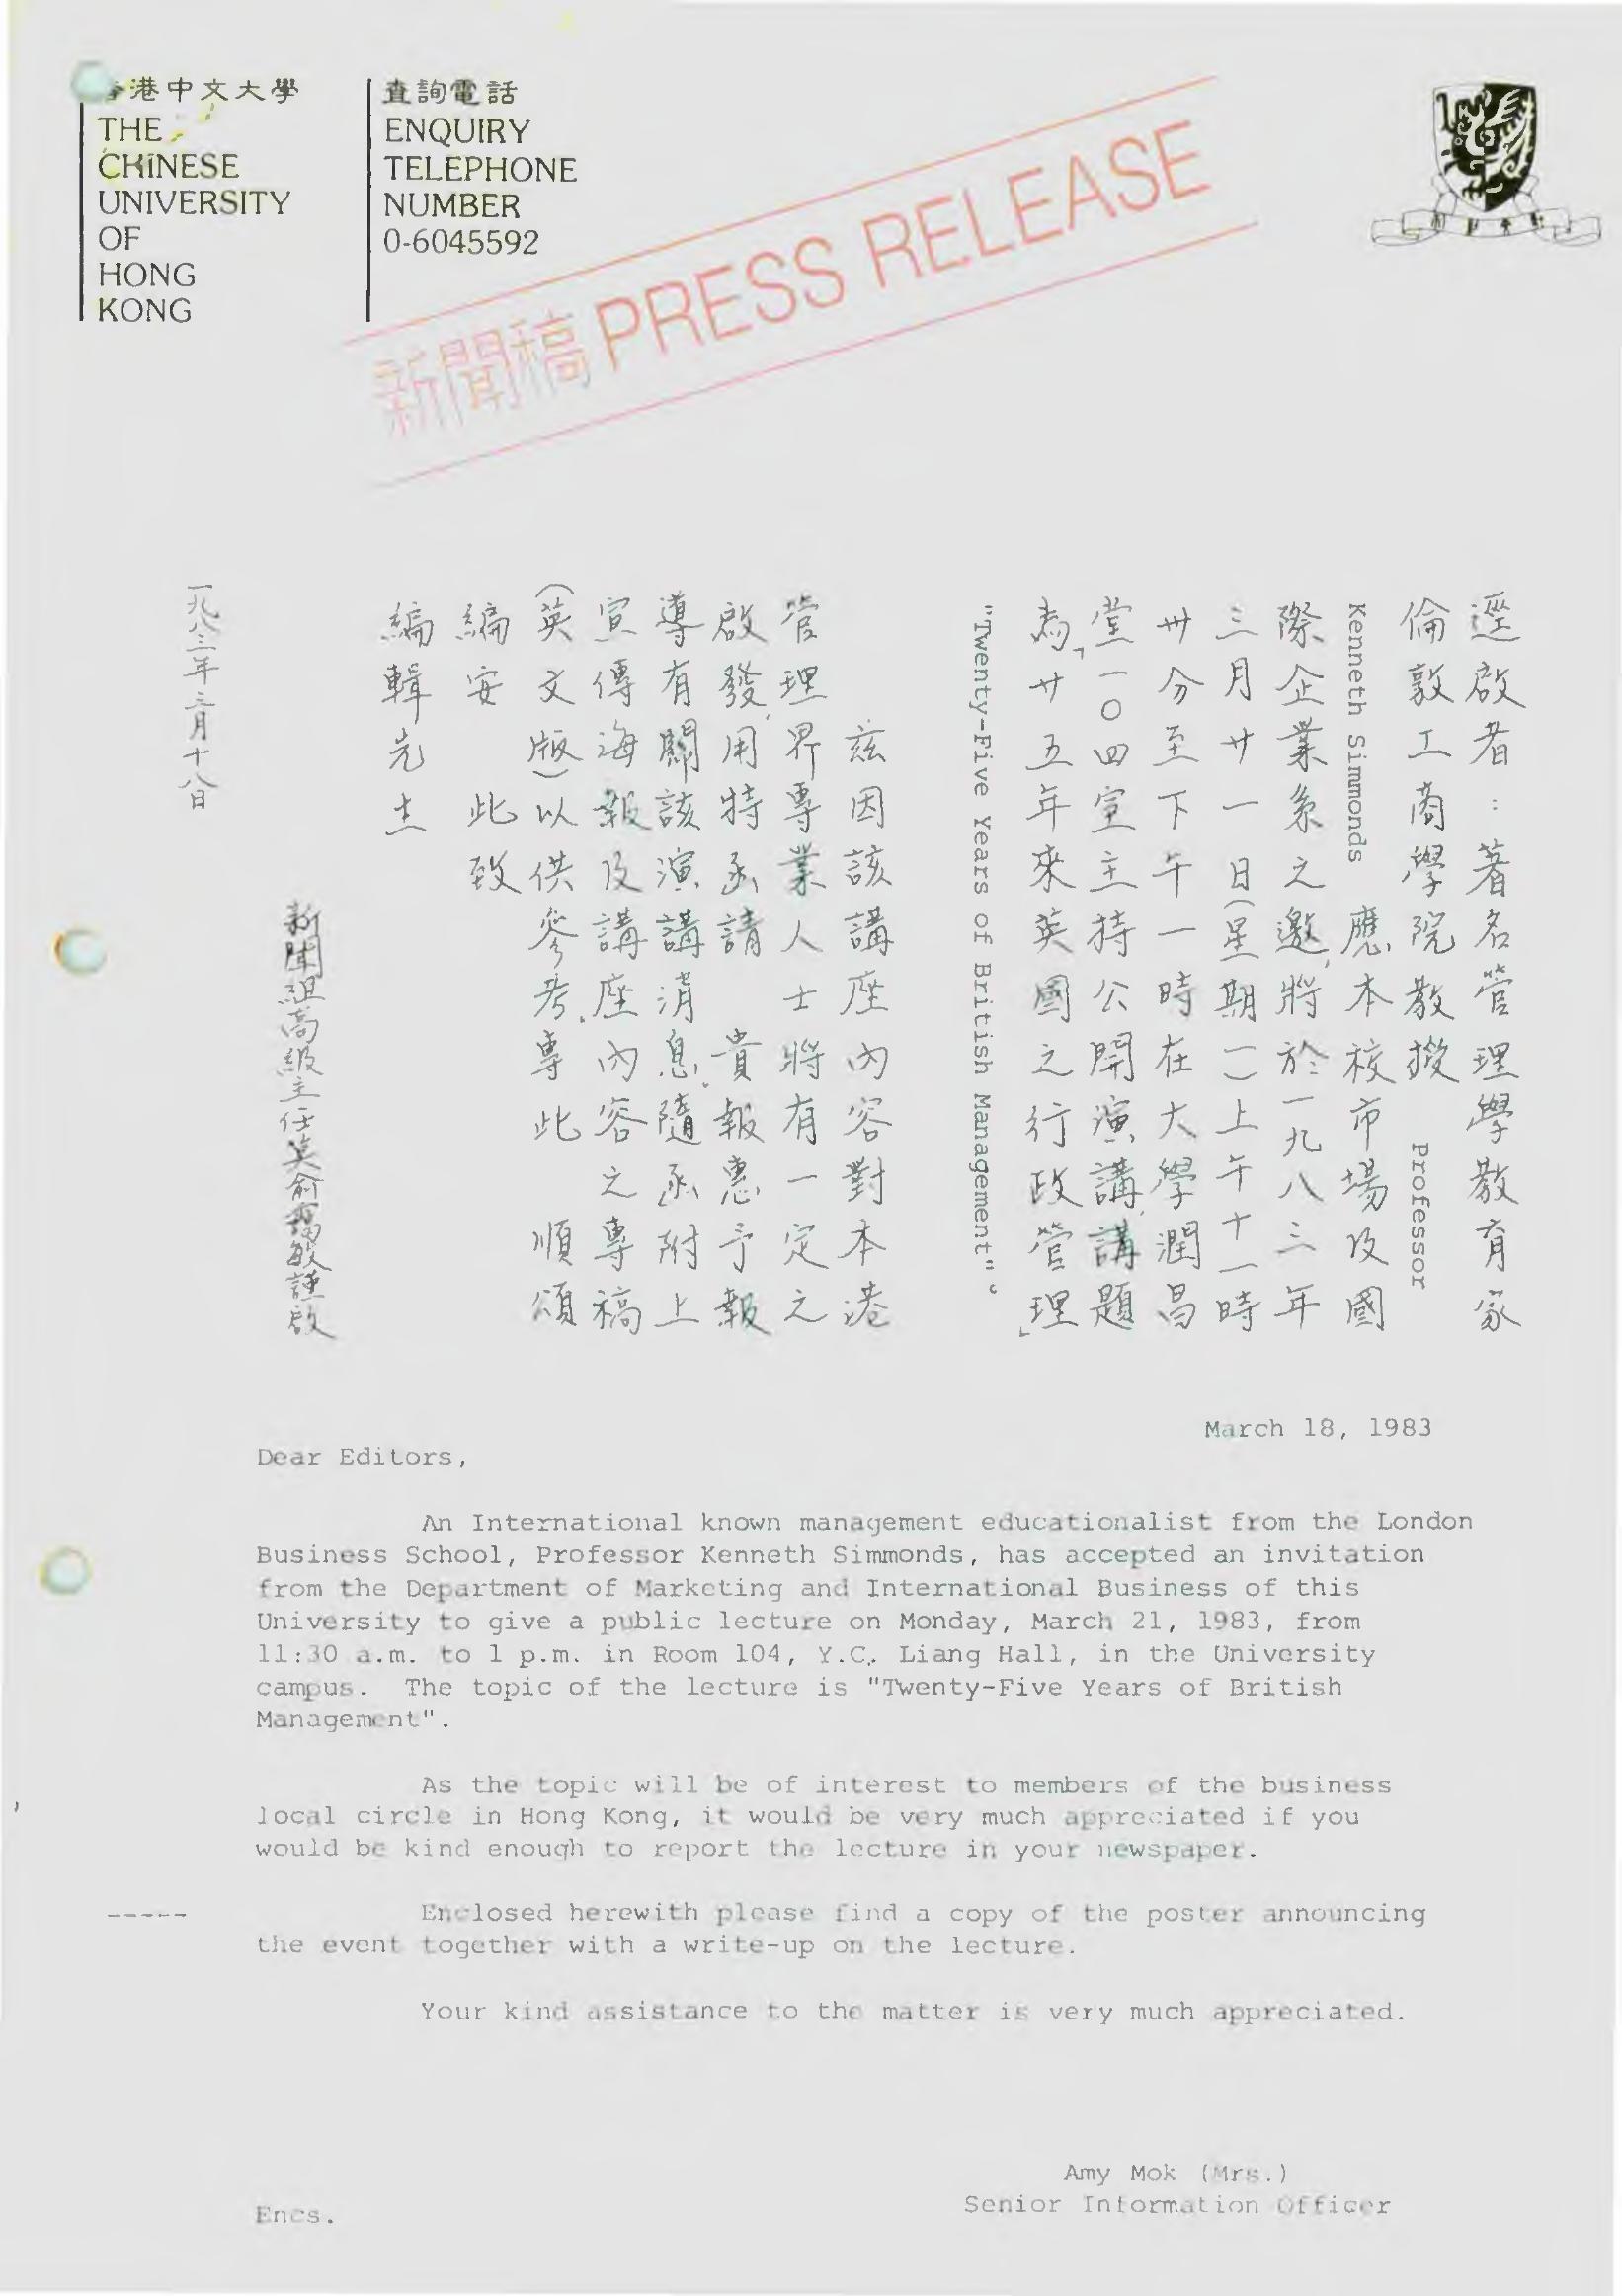 香港中文大學
THE
CHINESE
UNIVERSITY
OF
HONG
KONG
查詢電話
ENQUIRY
TELEPHONE
NUMBER
0-6045592
新聞稿 PRESS RELEASE
逕啟者：著名管理學教育家
倫敦工商學院教授 Professor
Kenneth Simmonds 應本校市場及國
際企業系之邀，將於一九八三年
三月廿一日（星期一）上午十一時
卅分至下午一時在大學潤昌
堂一〇四室主持公開演講，講題
為「廿五年來英國之行政管理」
"Twenty-Five Years of British Management"。
茲因該講座內容對本港
管理界專業人士將有一定之
啟發，用特函請 貴報惠予報
導有關該演講消息。隨函附上
宣傳海報及講座內容之專稿
（英文版）以供參考。專此 順頌
編安 此致
編輯先生
新聞組高級主任莫俞靄敏謹啟
一九八三年三月十八日
March 18, 1983
Dear Editors,
An International known management educationalist from the London
Business School, Professor Kenneth Simmonds, has accepted an invitation
from the Department of Marketing and International Business of this
University to give a public lecture on Monday, March 21, 1983, from
11:30 a.m. to 1 p.m. in Room 104, Y.C. Liang Hall, in the University
campus. The topic of the lecture is "Twenty-Five Years of British
Management".
As the topic will be of interest to members of the business
local circle in Hong Kong, it would be very much appreciated if you
would be kind enough to report the lecture in your newspaper.
-----
Enclosed herewith please find a copy of the poster announcing
the event together with a write-up on the lecture.
Your kind assistance to the matter is very much appreciated.
Amy Mok (Mrs.)
Senior Information Officer
Encs.